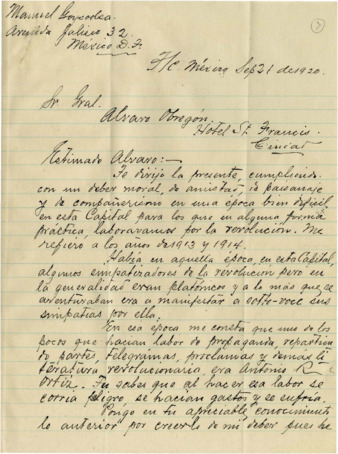 Manuel
Avenida Jalisco 32.
México D.F.
México Sep 21 de 1920.
Sr Gral.
Alvaro Obregón.
Hotel St. Francis.
Ciudad
Estimado Alvaro:—
Te dirijo la presente, cumpliendo
con un deber moral, de amistad, de paisanaje
y de compañerismo en una época bien dificil,
en esta Capital para los que en alguna forma
práctica, laboravamos por la revolucion. Me
refiero a los años de 1913 y 1914.
Habia en aquella época, en esta Capital,
algunos simpatizadores de la revolucion pero en
la generalidad eran platónicos y a lo más que se
aventuraban era a manifestar a sotto-voce sus
simpatias por ella.
En esa época me consta que uno de los
pocos que hacian labor de propaganda, repartien
do partes, telegramas, proclamas y demas li
teratura revolucionaria, era Antonio R.
Ortiz. Tu sabes que al hacer esa labor se
corria peligro, se hacian gastos y se sufria.
Pongo en tu apreciable conocimiento
lo anterior por creerlo de mi deber pues he